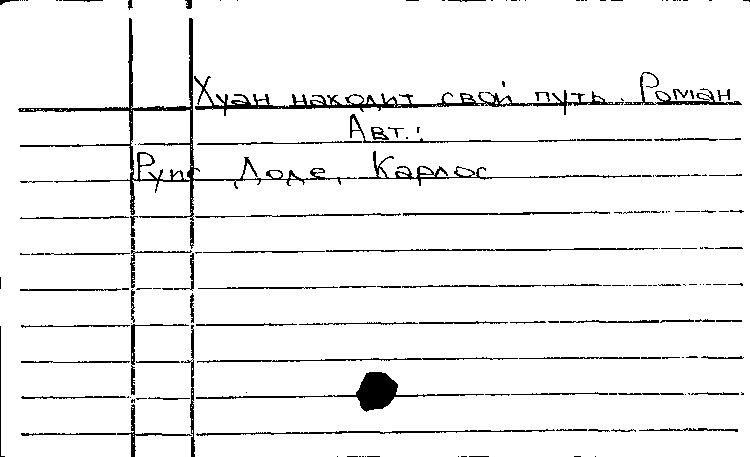 Хуан находит свой путь. Роман.
Авт.:
Рупс Доде, Карлос